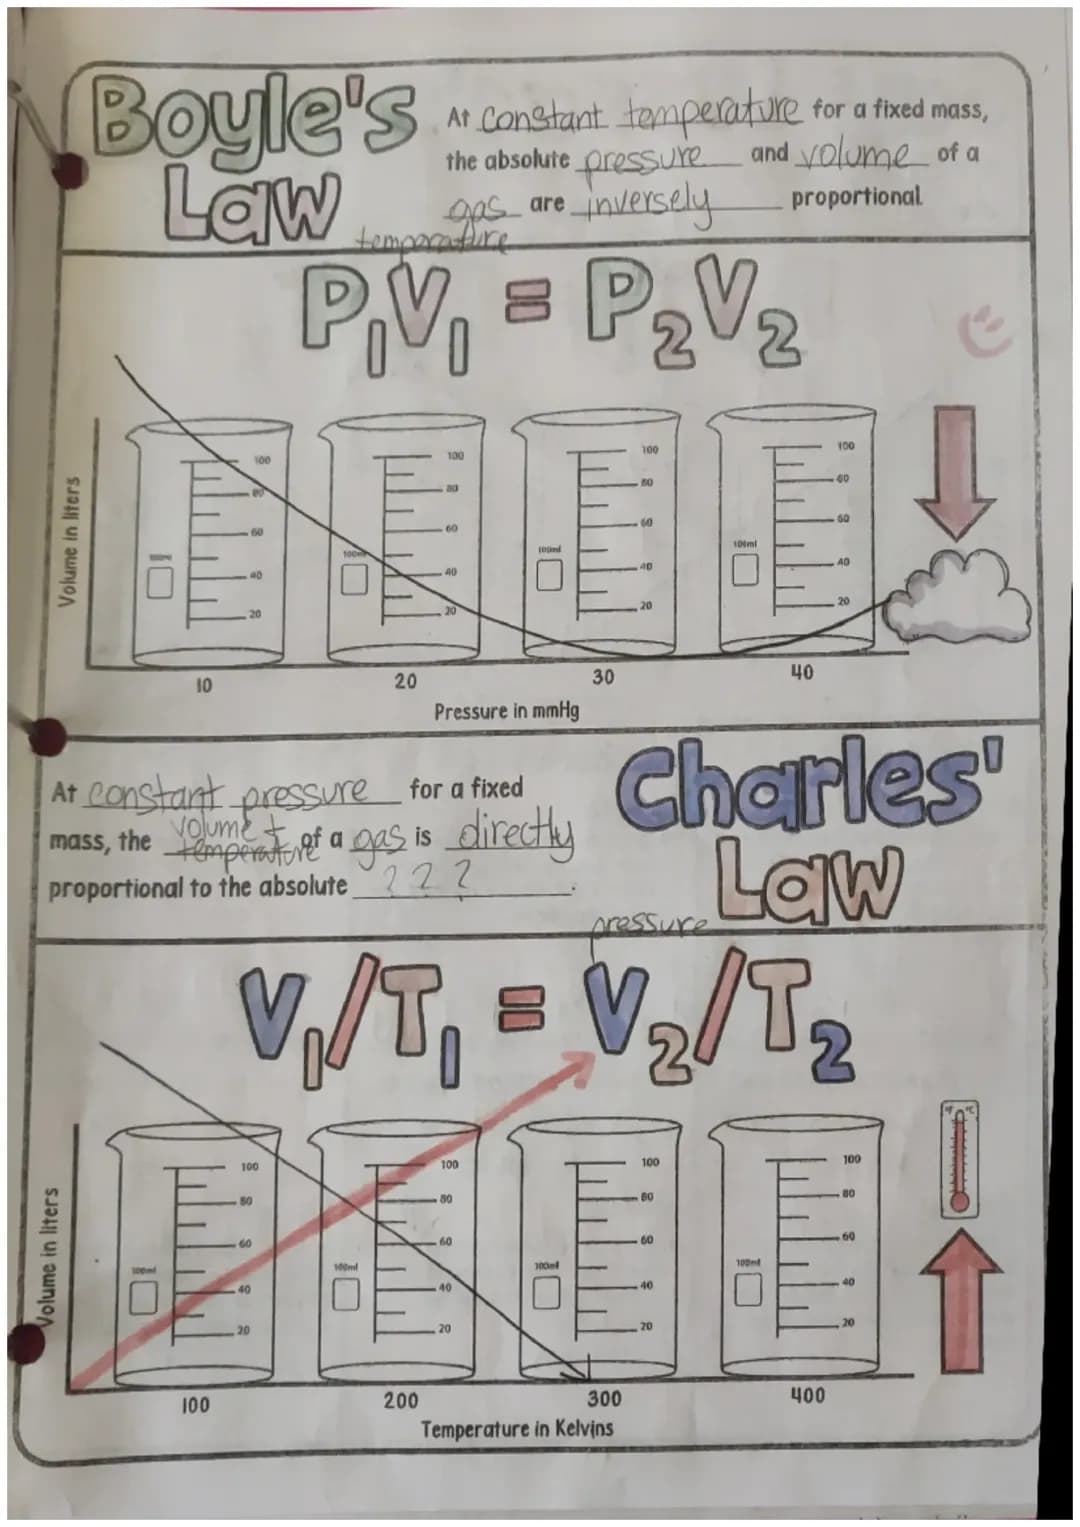 Boyle's
Law
At constant temperature for a fixed mass,
the absolute pressure and volume of a
gas are inversely proportional.
temperature
P1V1 = P2V2
Volume in liters
100 100 100 100
80 80 80 80
60 60 60 60
100ml 100ml 100ml 100ml
40 40 40 40
20 20 20 20
10 20 30 40
Pressure in mmHg
Charles'
Law
At constant pressure for a fixed
mass, the volume + temperature of a gas is directly
proportional to the absolute ? ? ?.
pressure
V1/T1 = V2/T2
Volume in liters
°F °C
100 100 100 100
80 80 80 80
60 60 60 60
100ml 100ml 100ml 100ml
40 40 40 40
20 20 20 20
100 200 300 400
Temperature in Kelvins